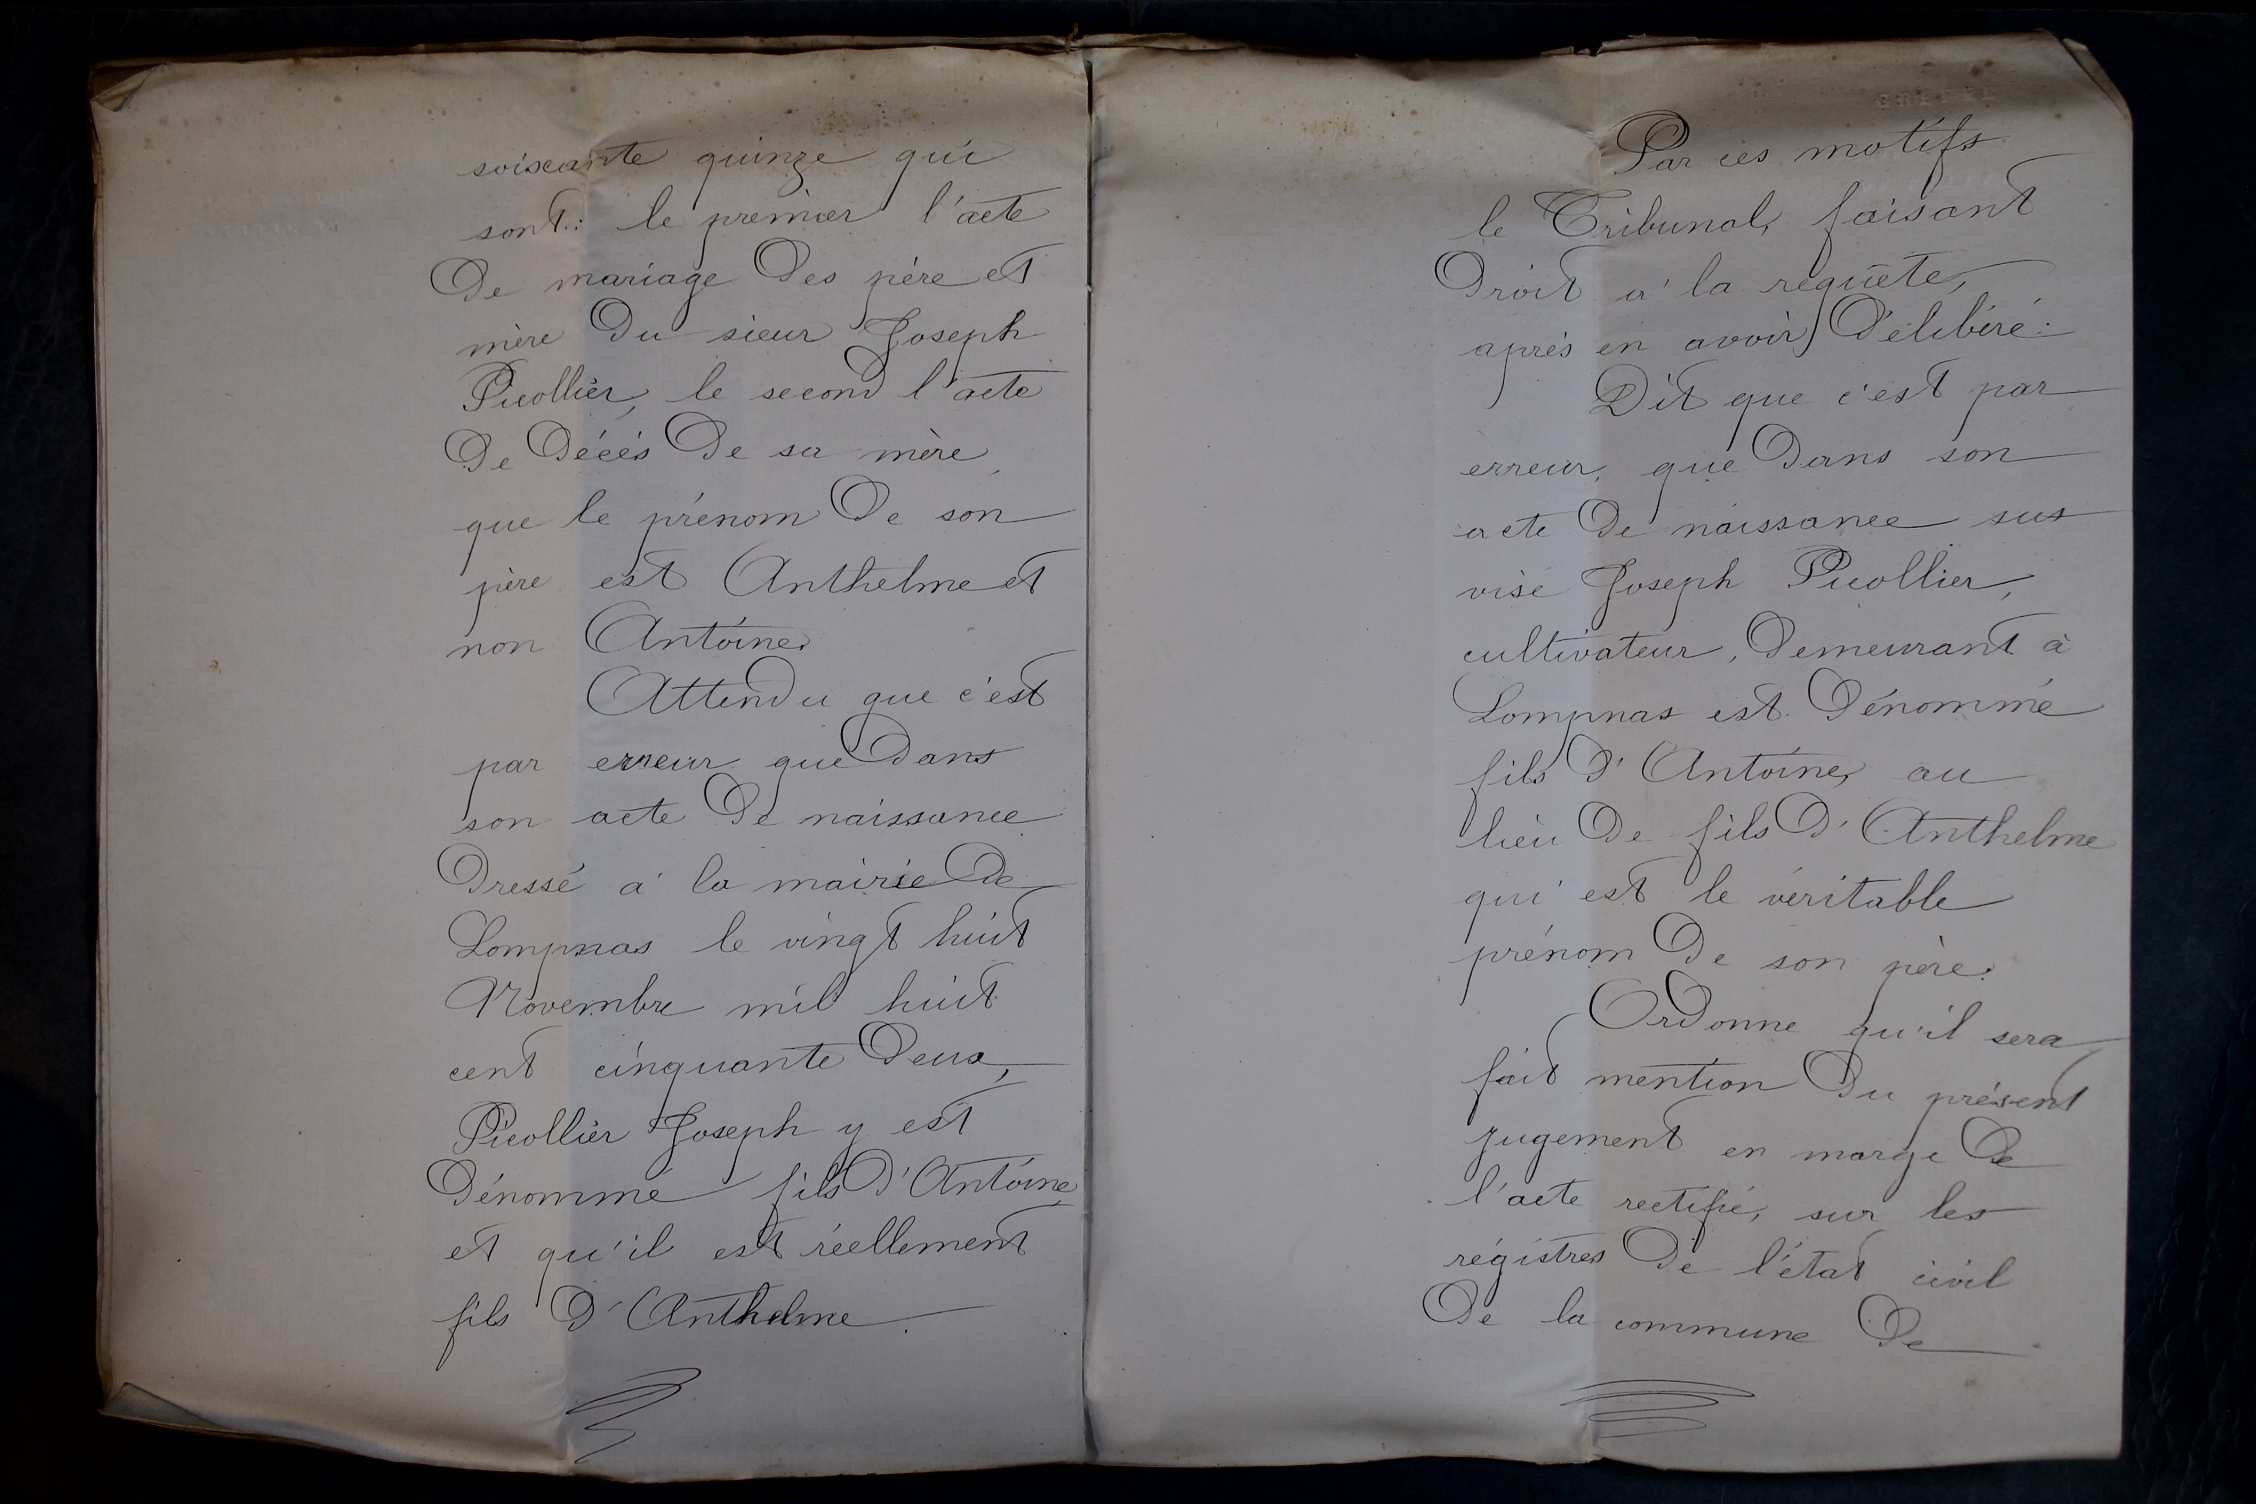 soixante quinze qui
sont : le premier l'acte
De mariage Des père et
mère Du sieur Joseph
Picollier, le second l'acte
De Décès De sa mère,
que le prénom De son
père est Anthelme et
non Antoine.
Attendu que c'est
par erreur que Dans
son acte De naissance
Dressé à la mairie De
Lompnas le vingt huit
Novembre mil huit
cent cinquante Deux,
Picollier Joseph y est
Dénommé fils D'Antoine,
et qu'il est réellement
fils D'Anthelme.
Par ces motifs
le Tribunal, faisant
Droit à la requête,
après en avoir Délibéré :
Dit que c'est par
erreur, que Dans son
acte De naissance sus
visé Joseph Picollier,
cultivateur, Demeurant à
Lompnas est Dénommé
fils D'Antoine, au
lieu De fils D'Anthelme
qui est le véritable
prénom De son père.
Ordonne qu'il sera
fait mention Du présent
jugement en marge De
l'acte rectifié, sur les
régistres De l'état civil
De la commune De